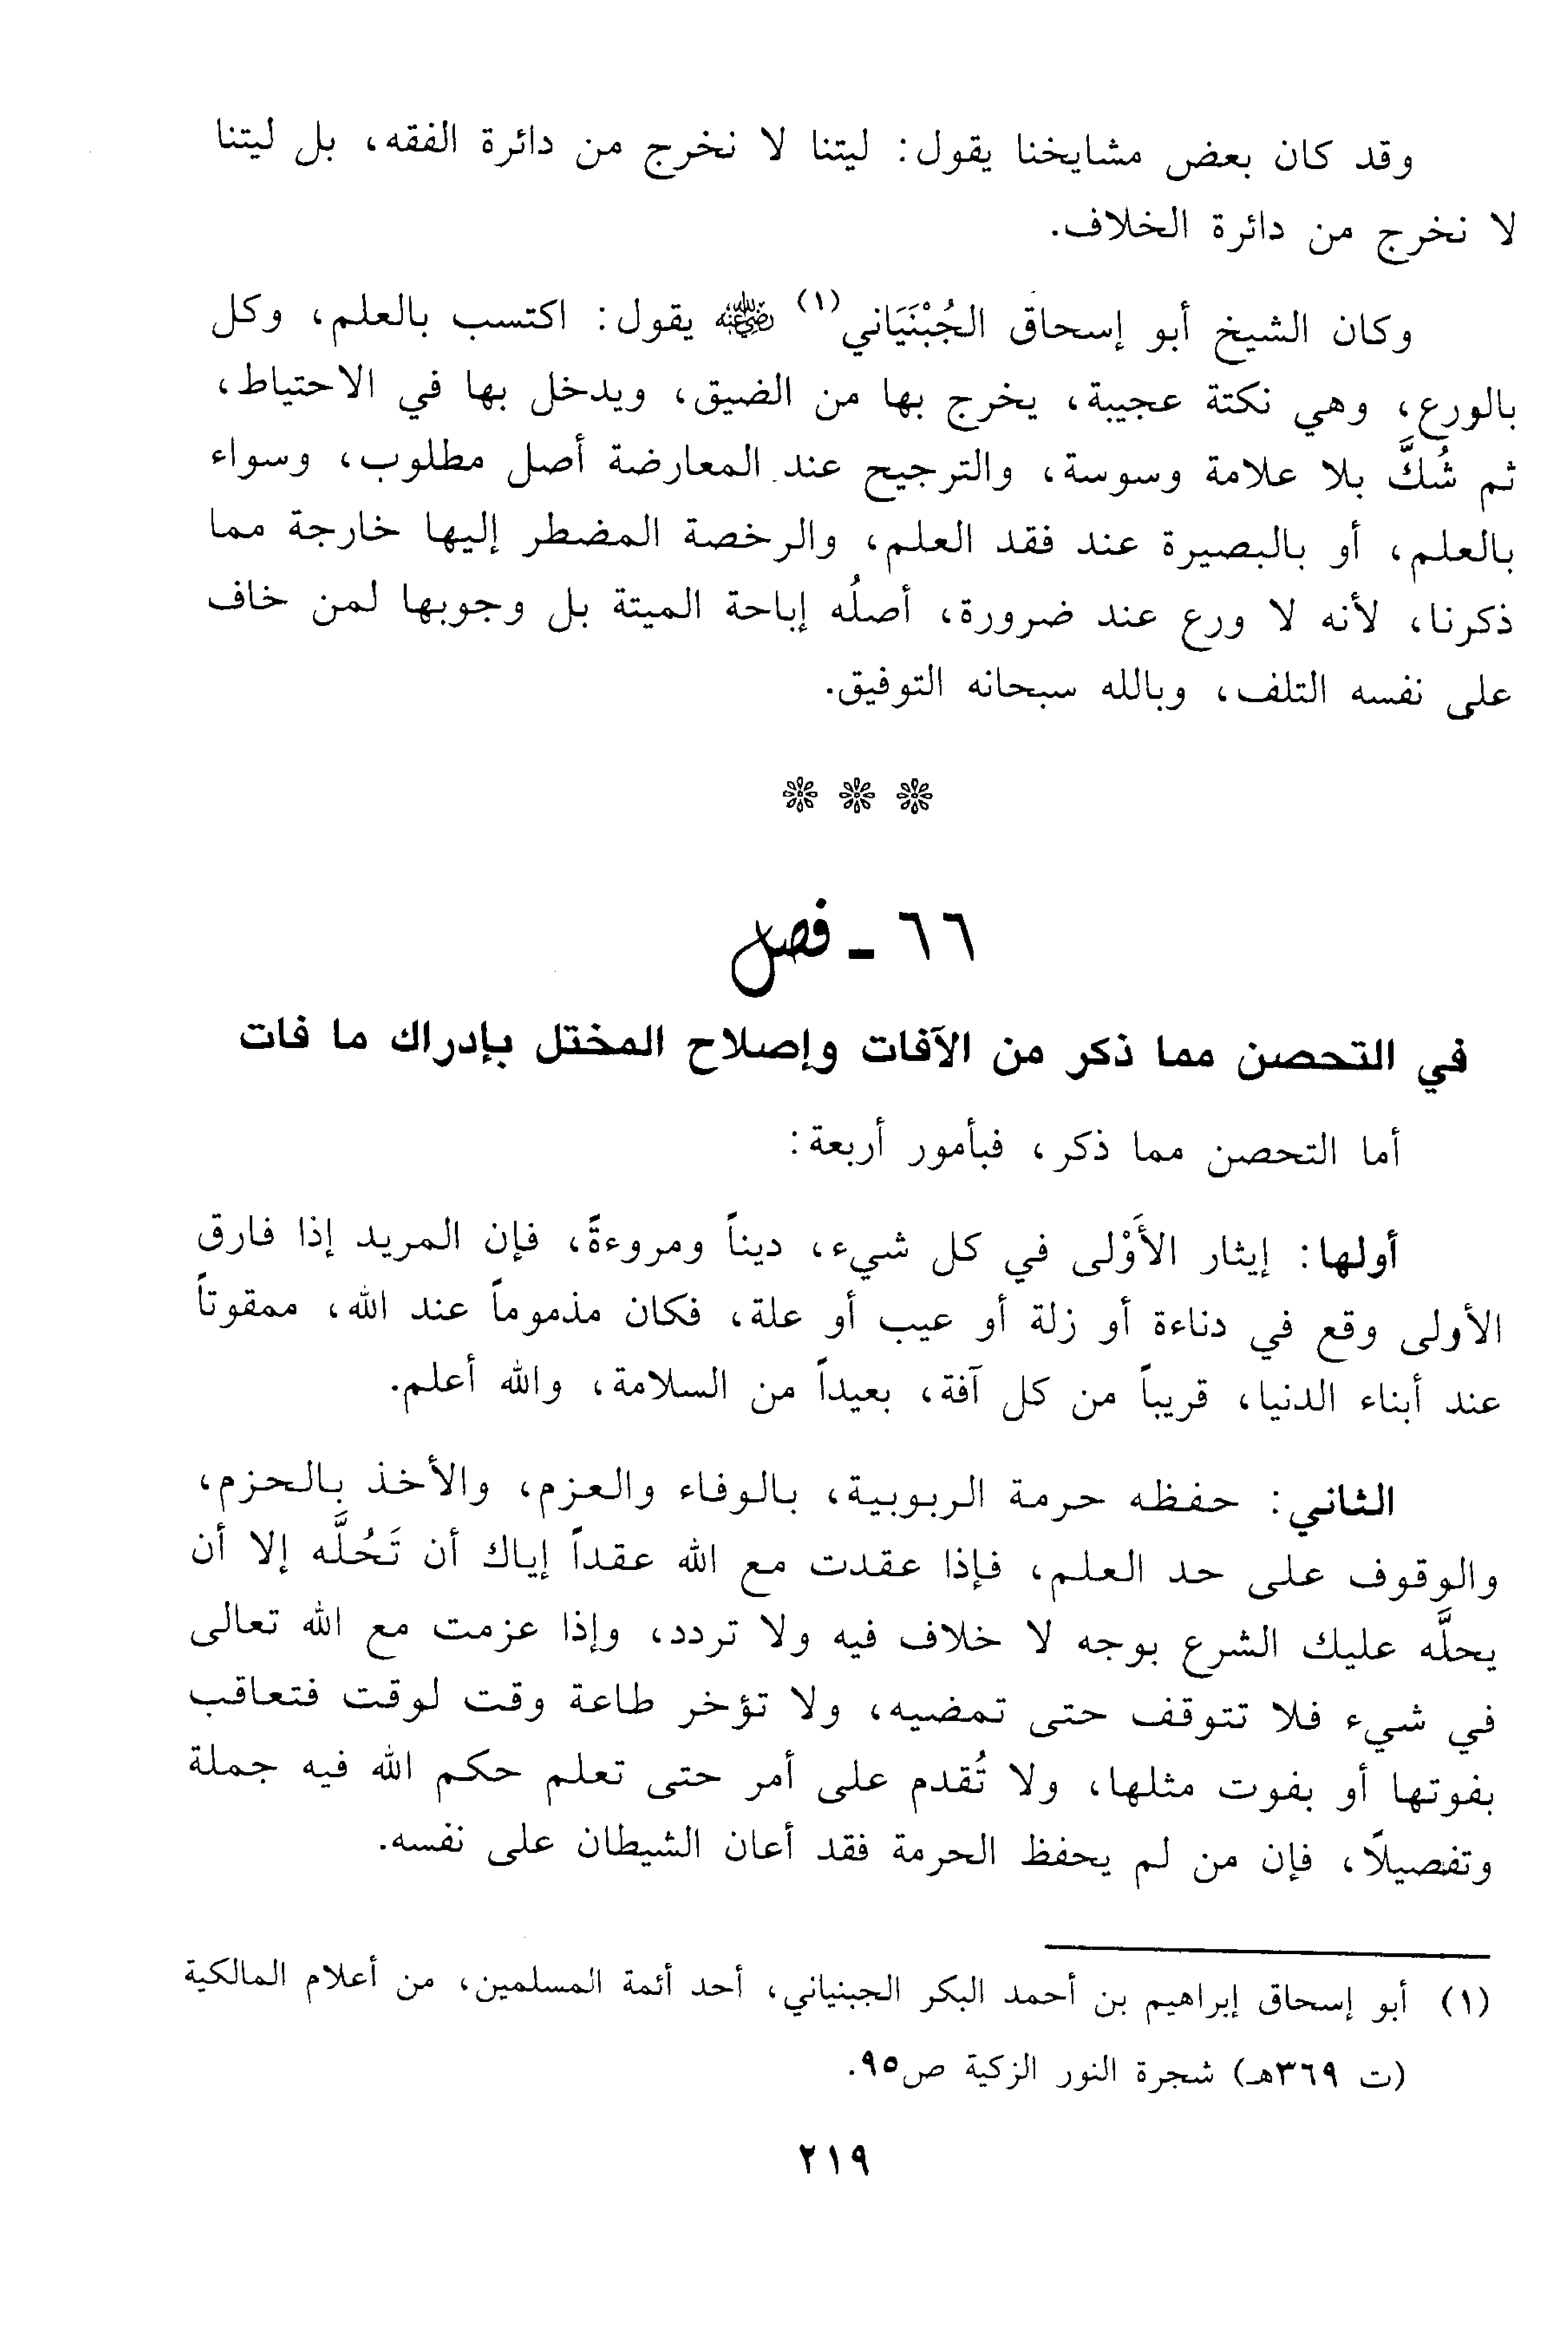 وقد كان بعض مشايخنا يقول: ليتنا لا نخرج من دائرة الفقه، بل ليتنا
لا نخرج من دائرة الخلاف.
وكان الشيخ أبو إسحاق الجُبْنَيَاني(١) رضي الله عنه يقول: اكتسب بالعلم، وكل
بالورع، وهي نكتة عجيبة، يخرج بها من الضيق، ويدخل بها في الاحتياط،
ثم شُكَّ بلا علامة وسوسة، والترجيح عند المعارضة أصل مطلوب، وسواء
بالعلم، أو بالبصيرة عند فقد العلم، والرخصة المضطر إليها خارجة مما
ذكرنا، لأنه لا ورع عند ضرورة، أصلُه إباحة الميتة بل وجوبها لمن خاف
على نفسه التلف، وبالله سبحانه التوفيق.
❊ ❊ ❊
٦٦ ـ فصل
في التحصن مما ذكر من الآفات وإصلاح المختل بإدراك ما فات
أما التحصن مما ذكر، فبأمور أربعة:
أولها: إيثار الأَوْلى في كل شيء، ديناً ومروءةً، فإن المريد إذا فارق
الأولى وقع في دناءة أو زلة أو عيب أو علة، فكان مذموماً عند الله، ممقوتاً
عند أبناء الدنيا، قريباً من كل آفة، بعيداً من السلامة، والله أعلم.
الثاني: حفظه حرمة الربوبية، بالوفاء والعزم، والأخذ بالحزم،
والوقوف على حد العلم، فإذا عقدت مع الله عقداً إياك أن تَحُلَّه إلا أن
يحلَّه عليك الشرع بوجه لا خلاف فيه ولا تردد، وإذا عزمت مع الله تعالى
في شيء فلا تتوقف حتى تمضيه، ولا تؤخر طاعة وقت لوقت فتعاقب
بفوتها أو بفوت مثلها، ولا تُقدم على أمر حتى تعلم حكم الله فيه جملة
وتفصيلًا، فإن من لم يحفظ الحرمة فقد أعان الشيطان على نفسه.
(١) أبو إسحاق إبراهيم بن أحمد البكر الجبنياني، أحد أئمة المسلمين، من أعلام المالكية
(ت ٣٦٩هـ) شجرة النور الزكية ص٩٥.
٢١٩